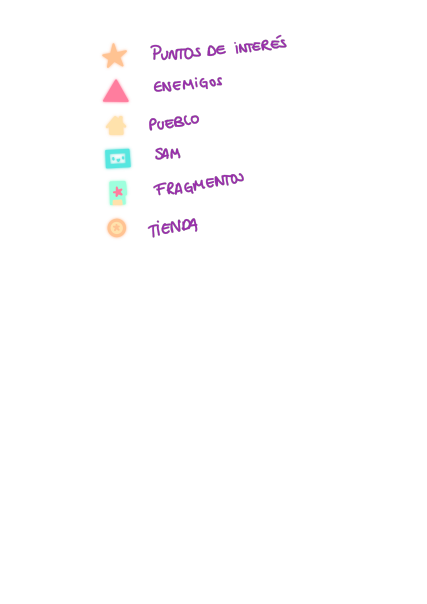 PUNTOS DE iNTERÉS
ENEMiGOS
PUEBLO
SAM
FRAGMENTOS
TiENDA